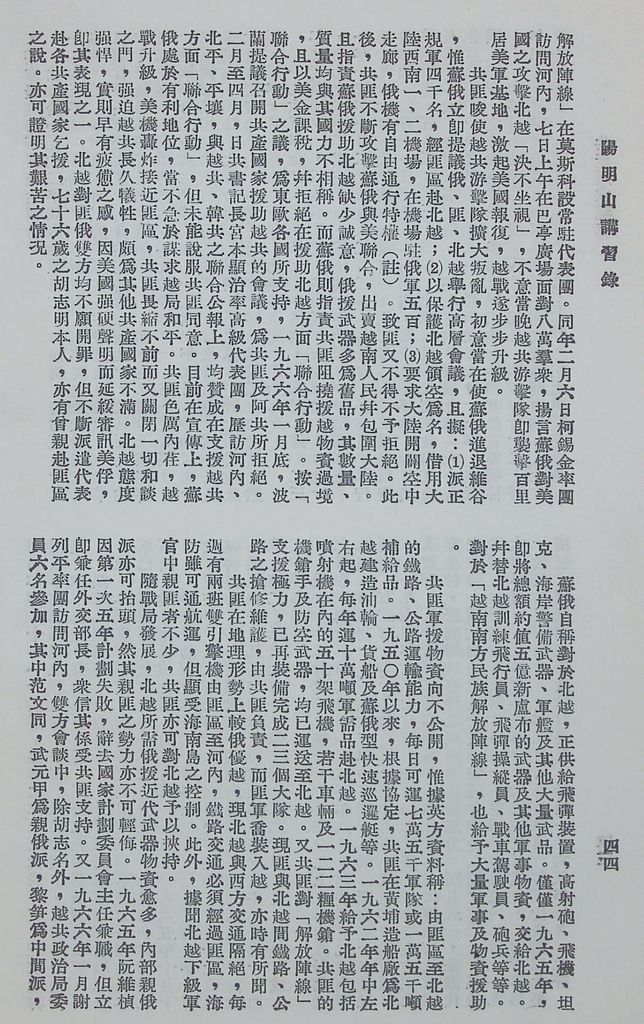 陽明山講習錄
四四
解放陣線」在莫斯科設常駐代表團。同年二月六日柯錫金率團
訪問河內，七日上午在巴亭廣場面對八萬羣衆，揚言蘇俄對美
國之攻擊北越「決不坐視」，不意當晚越共游擊隊卽襲擊百里
居美軍基地，激起美國報復，越戰逐步步升級。
共匪唆使越共游擊隊擴大叛亂，初意當在使蘇俄進退維谷
，惟蘇俄立卽提議俄、匪、北越舉行高層會議，且擬：⑴派正
規軍四千名，經匪區赴北越；⑵以保護北越領空爲名，借用大
陸西南一、二機場，在機場駐俄軍五百；⑶要求大陸開闢空中
走廊，俄機有自由通行特權（註）。致匪又不得不予拒絕。此
後，共匪不斷攻擊蘇俄與美聯合，出賣越南人民幷包圍大陸。
且指責蘇俄援助北越缺少誠意，俄援武器多爲舊品，其數量、
質量均與其國力不相稱。而蘇俄則指責共匪阻撓援越物資過境
，且以美金課稅，幷拒絕在援助北越方面「聯合行動」。按「
聯合行動」之議，爲東歐各國所支持，一九六六年一月底，波
蘭提議召開共產國家援助越共的會議，爲共匪及阿共所拒絕。
二月至四月，日共書記長宮本顯治率高級代表團，歷訪河內、
北平、平壤，與越共、韓共之聯合公報上，均贊成在支援越共
方面「聯合行動」，但未能說服共匪同意。目前在宣傳上，蘇
俄處於有利地位，當不急於謀求越局和平。共匪色厲內荏，越
戰升級，美機轟炸接近匪區，共匪畏縮不前而又關閉一切和談
之門，强迫越共長久犧牲，頗爲其他共產國家不滿。北越態度
强悍，實則早有疲憊之感，因美國强硬聲明而延緩審訊美俘，
卽其表現之一。北越對匪俄雙方均不願開罪，但不斷派遣代表
赴各共產國家乞援，七十六歲之胡志明本人，亦有曾親赴匪區
之說。亦可證明其艱苦之情況。
蘇俄自稱對於北越，正供給飛彈裝置，高射砲、飛機、坦
克、海岸警備武器、軍艦及其他大量武品。僅僅一九六五年，
卽將總額約值五億新盧布的武器及其他軍事物資，交給北越。
幷替北越訓練飛行員、飛彈操縱員、戰車駕駛員、砲兵等等。
對於「越南南方民族解放陣線」，也給予大量軍事及物資援助
。
共匪軍援物資向不公開，惟據英方資料稱：由匪區至北越
的鐵路、公路運輸能力，每日可運七萬五千軍隊或一萬五千噸
補給品。一九五〇年以來，根據協定，共匪在黃埔造船廠爲北
越建造油輪、貨船及蘇俄型快速巡邏艇等。一九六二年年中左
右起，每年運十萬噸軍需品赴北越。一九六三年給予北越包括
噴射機在內的五十架飛機，若干車輛及一二二糎機鎗。共匪的
機鎗手及防空武器，均已運送至北越。又共匪對「解放陣線」
支援極力，已再裝備完成二三個大隊。現匪與北越間鐵路、公
路之搶修維護，由共匪負責，而匪軍喬裝入越，亦時有所聞。
共匪在地理形勢上較俄優越，現北越與西方交通隔絕，每
週有兩班雙引擎機由匪區至河內，鐵路交通必須經過匪區，海
防雖可通航運，但顯受海南島之控制。此外，據聞北越下級軍
官中親匪者不少，共匪亦可對北越予以挾持。
隨戰局發展，北越所需俄援近代武器物資愈多，內部親俄
派亦可抬頭，然其親匪之勢力亦不可輕侮。一九六五年阮維楨
因第一次五年計劃失敗，辭去國家計劃委員會主任兼職，但立
卽兼任外交部長，衆信其係受共匪支持。又一九六六年一月謝
列平率團訪問河內，雙方會談中，除胡志名外，越共政治局委
員六名參加，其中范文同，武元甲爲親俄派，黎筍爲中間派，